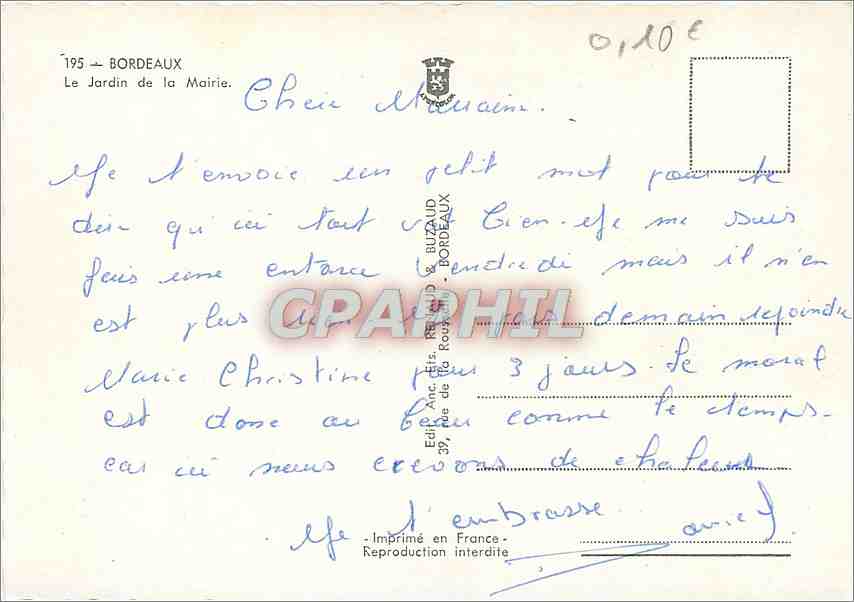 0,10 €
195 - BORDEAUX
Le Jardin de la Mairie.
Cheie Marraine.
Je t'envoie un petit mot pour te
dire qu'ici tout va bien. Je me suis
fais une entorse Vendredi mais il n'en
est plus rien Je vais demain rejoindre
Marie Christine pour 3 jours. Le moral
est donc au beau comme le temps.
car ici nous crevons de chaleur
Je t'embrasse.
CPAPHIL
Edit. Anc. Ets. RENAUD & BUZAUD
39, rue de la Rousselle - BORDEAUX
- Imprimé en France -
Reproduction interdite